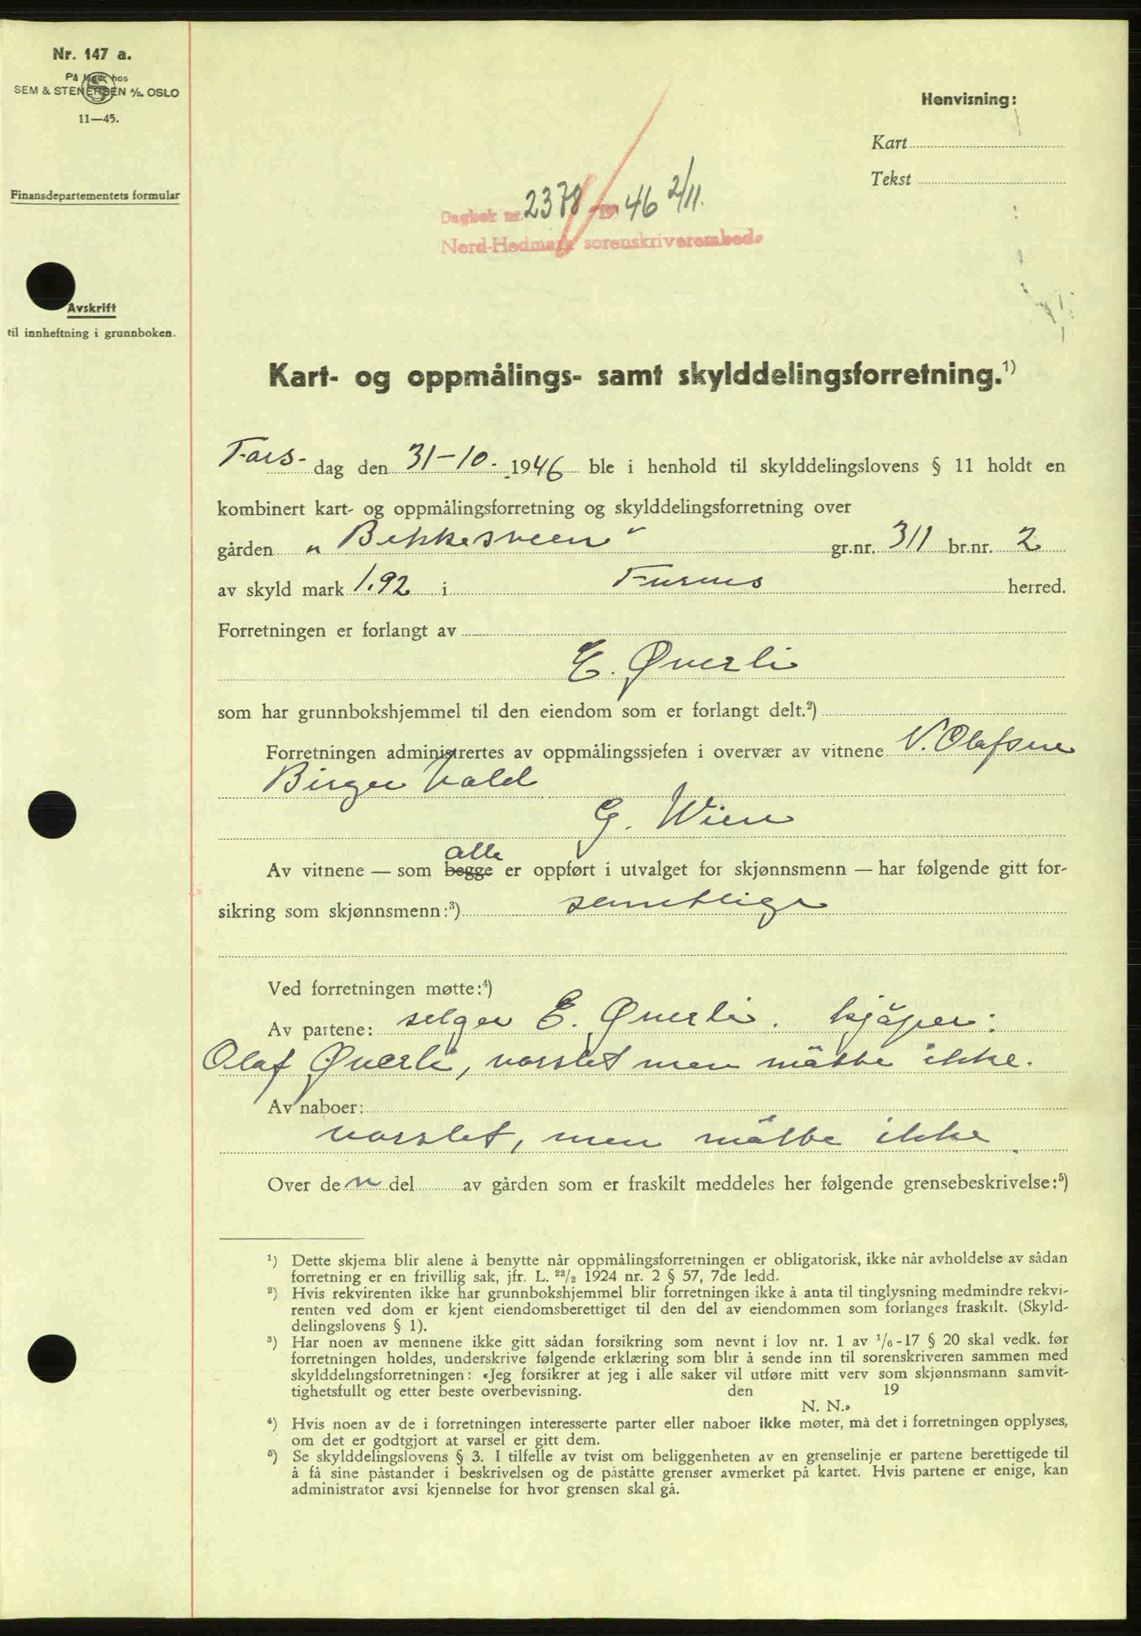 Nr. 147 a.
På lager hos
SEM & STENERSEN A/S. OSLO
11—45.
Finansdepartementets formular
Avskrift
til innheftning i grunnboken.
Henvisning:
Kart
Tekst
Dagbok nr. 2378 - 19 46 2/11.
Nord-Hedmark sorenskriverembede
Kart- og oppmålings- samt skylddelingsforretning.¹)
Tors- dag den 31-10. 1946 ble i henhold til skylddelingslovens § 11 holdt en
kombinert kart- og oppmålingsforretning og skylddelingsforretning over
gården „Bekkesveen" gr.nr. 311 br.nr. 2
av skyld mark 1.92 i Furnes herred.
Forretningen er forlangt av
E. Øverli
som har grunnbokshjemmel til den eiendom som er forlangt delt.²)
Forretningen administrertes av oppmålingssjefen i overvær av vitnene N. Olafsen
Birger Vold
G. Wien
alle
Av vitnene — som begge er oppført i utvalget for skjønnsmenn — har følgende gitt for-
sikring som skjønnsmenn:³) samtlige
Ved forretningen møtte:⁴)
Av partene: selger E. Øverli. kjøper:
Olaf Øverli, varslet men møtte ikke.
Av naboer:
varslet, men møtte ikke
Over den del av gården som er fraskilt meddeles her følgende grensebeskrivelse:⁵)
¹) Dette skjema blir alene å benytte når oppmålingsforretningen er obligatorisk, ikke når avholdelse av sådan
forretning er en frivillig sak, jfr. L. ²²/₂ 1924 nr. 2 § 57, 7de ledd.
²) Hvis rekvirenten ikke har grunnbokshjemmel blir forretningen ikke å anta til tinglysning medmindre rekvi-
renten ved dom er kjent eiendomsberettiget til den del av eiendommen som forlanges fraskilt. (Skyld-
delingslovens § 1).
³) Har noen av mennene ikke gitt sådan forsikring som nevnt i lov nr. 1 av ¹/₆-17 § 20 skal vedk. før
forretningen holdes, underskrive følgende erklæring som blir å sende inn til sorenskriveren sammen med
skylddelingsforretningen: «Jeg forsikrer at jeg i alle saker vil utføre mitt verv som skjønnsmann samvit-
tighetsfullt og etter beste overbevisning. den 19
N. N.»
⁴) Hvis noen av de i forretningen interesserte parter eller naboer ikke møter, må det i forretningen opplyses,
om det er godtgjort at varsel er gitt dem.
⁵) Se skylddelingslovens § 3. I tilfelle av tvist om beliggenheten av en grenselinje er partene berettigede til
å få sine påstander i beskrivelsen og de påståtte grenser avmerket på kartet. Hvis partene er enige, kan
administrator avsi kjennelse for hvor grensen skal gå.